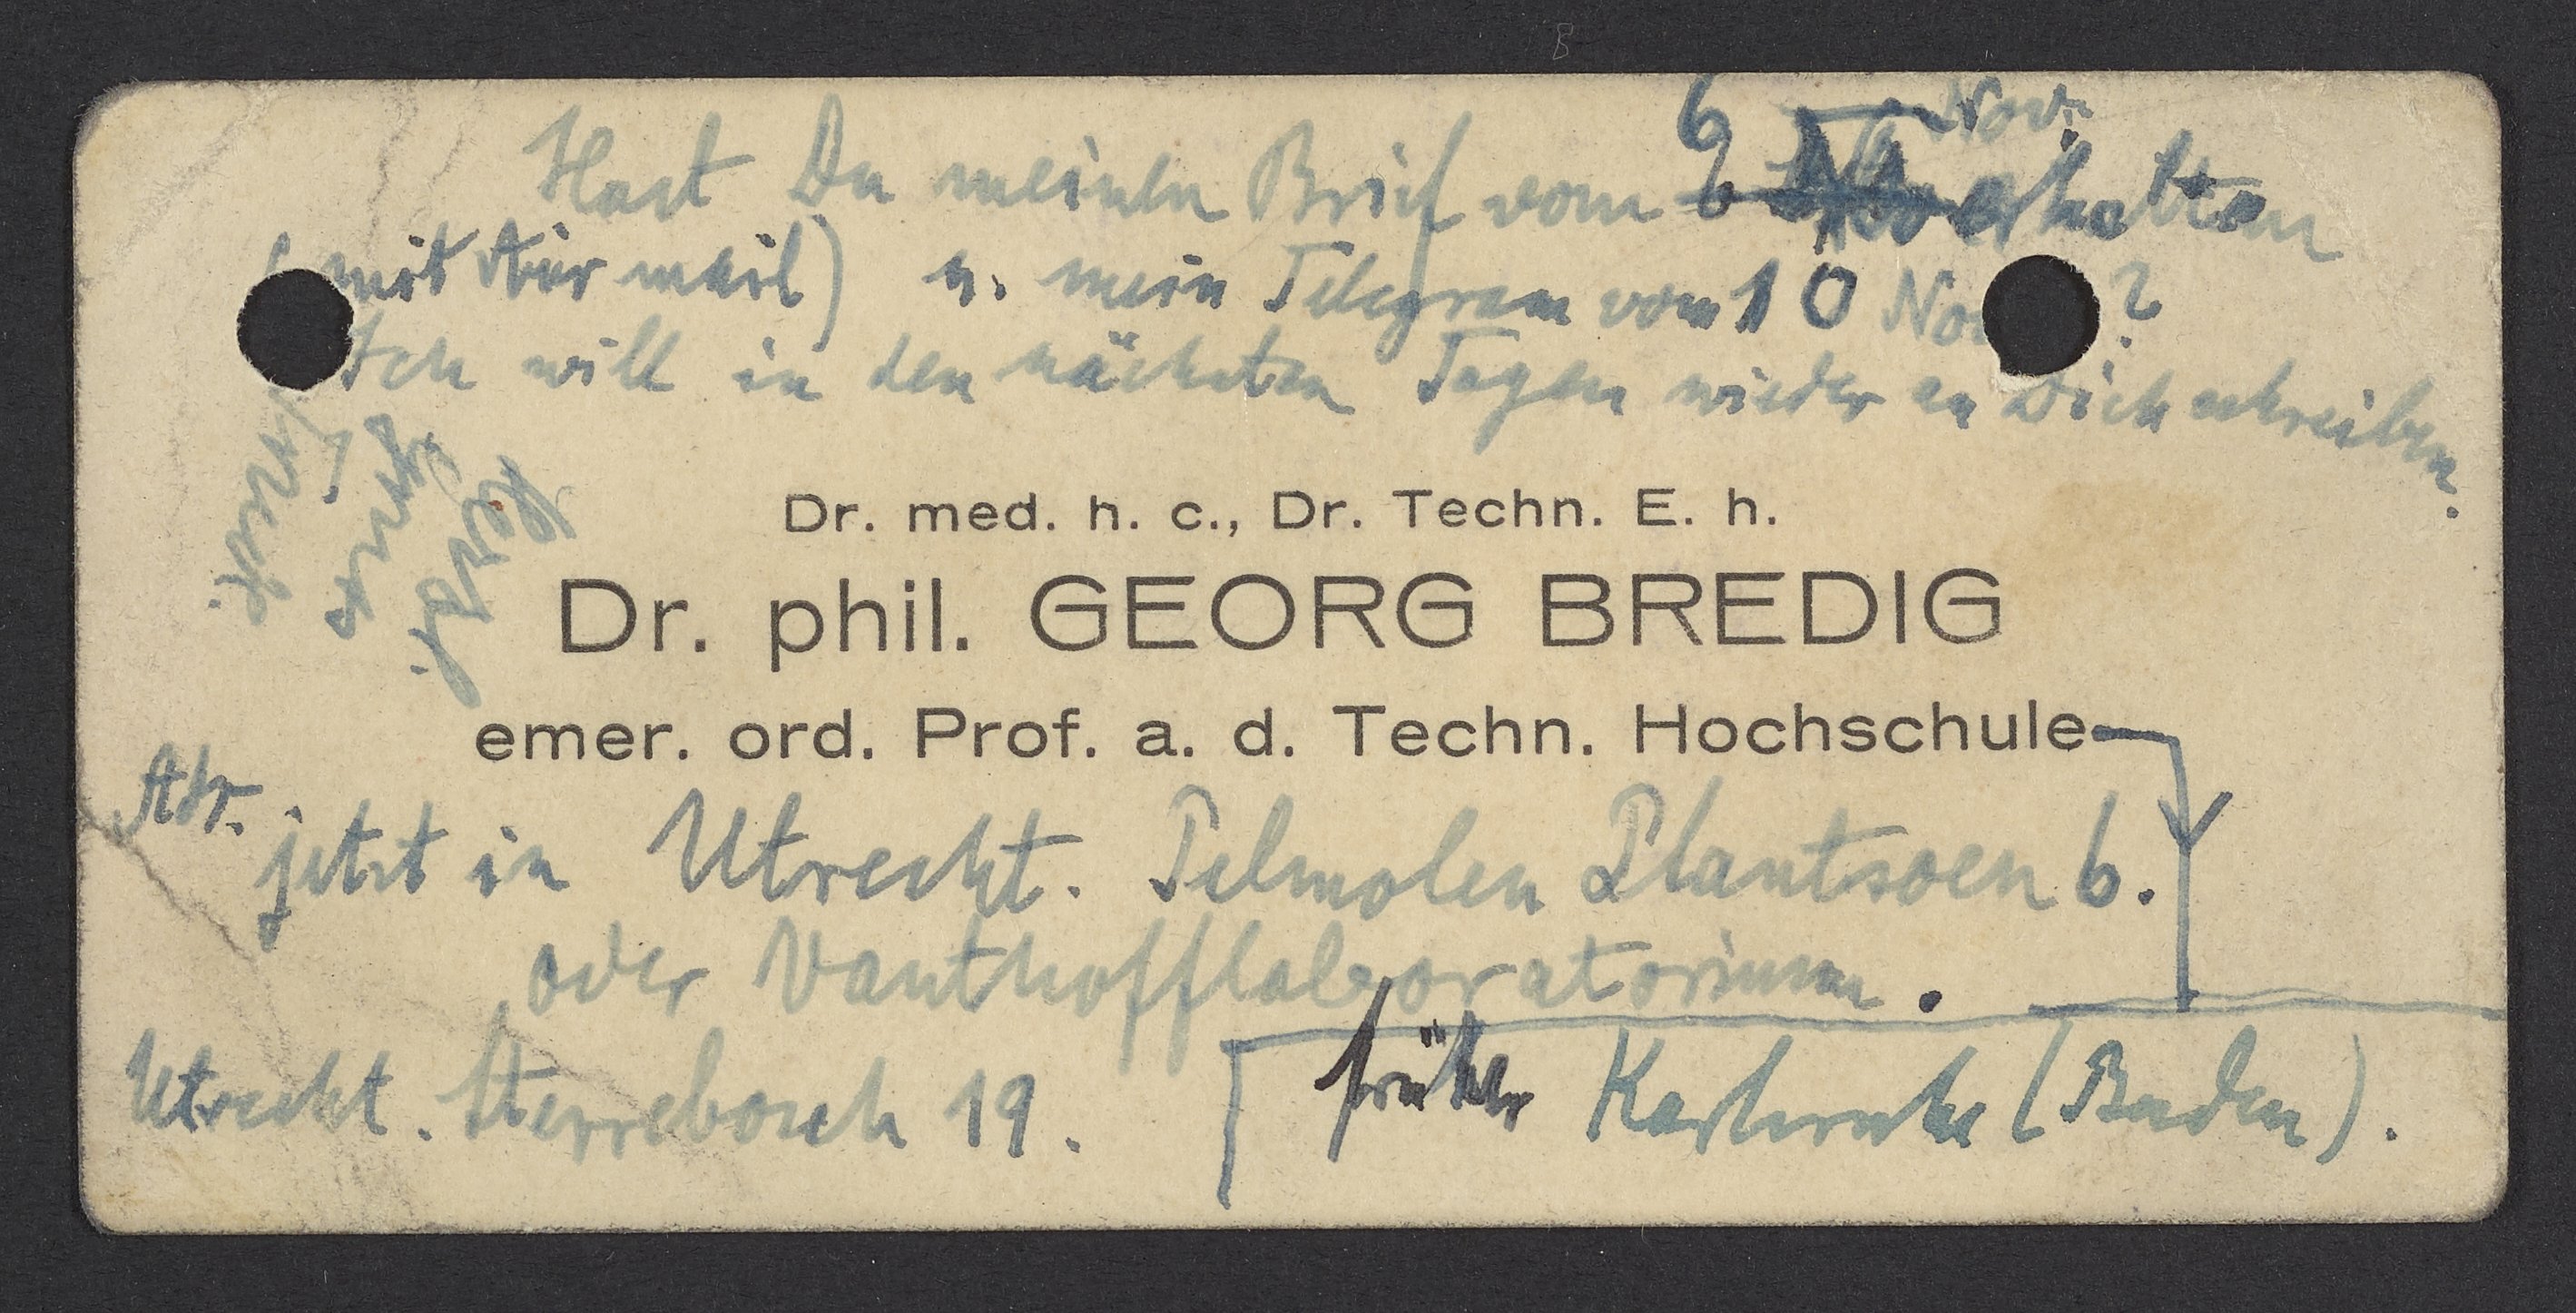 Hast Du meinen Brief vom 6 Nov. erhalten
(mit Air mail) u. mein Telegram vom 10 Nov ?
Ich will in den nächsten Tagen wieder an Dich schreiben.
Herzl.
Gruss
Dr. med. h. c., Dr. Techn. E. h.
Dr. phil. GEORG BREDIG
emer. ord. Prof. a. d. Techn. Hochschule
Adr.
jetzt in Utrecht. Pelmolen Plantsoen 6.
oder Vanthofflaboratorium.
Utrecht. Sterrebosch 19.
früher Karlsruhe (Baden).